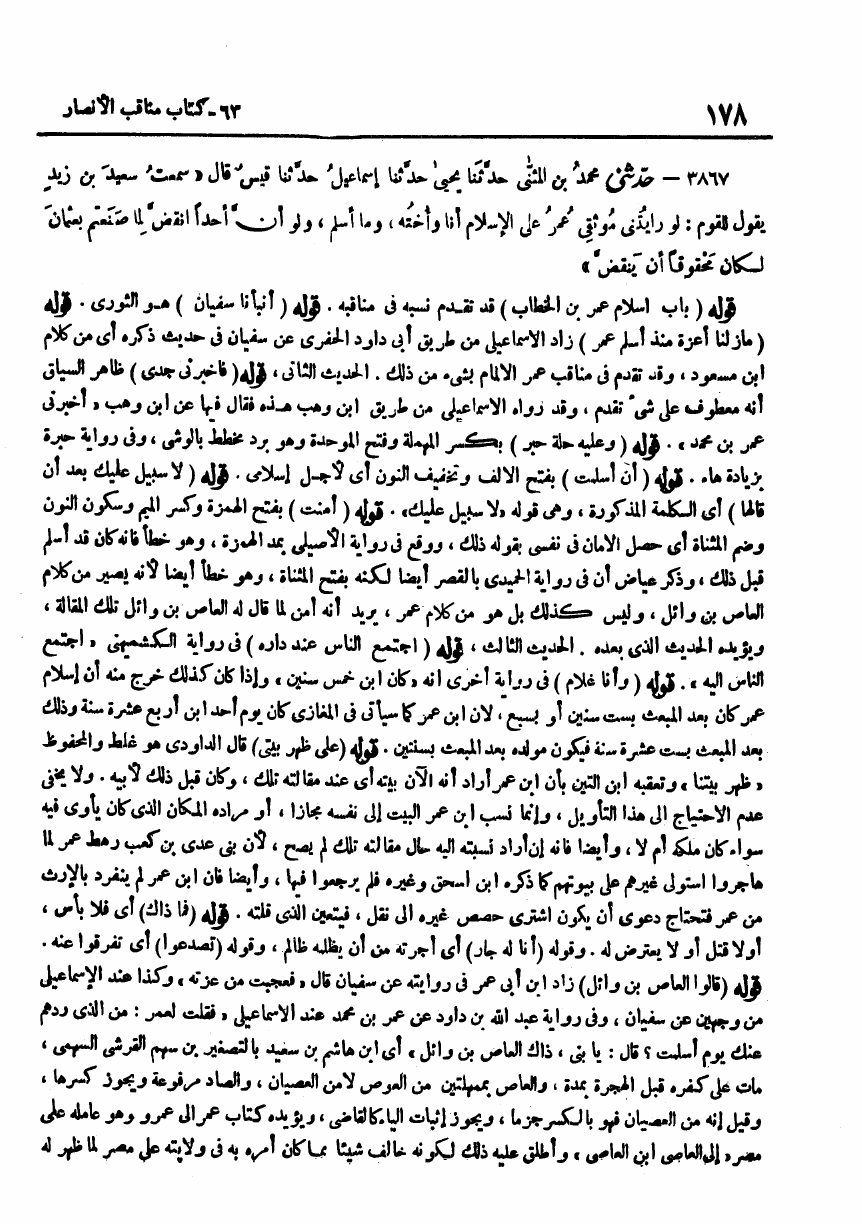 ١٧٨
٦٣ - كتاب مناقب الأنصار
٣٨٦٧ - حدّثني محمدُ بن المثنّى حدَّثنَا يحيىٰ حدثنا إسماعيلُ حدَّثنا قيسٌ قال « سمعتُ سعيدَ بن زيدٍ
يقول للقوم : لو رايتُني مُوثِقِي عُمرُ على الإسلام أنا وأختُه ، وما أسلم ، ولو أنَّ أحداً انقضَّ لِما صَنَعتم بعثمانَ
لـكان مَحْقوقاً أن يَنقضَّ »
قوله ( باب اسلام عمر بن الخطاب ) قد تقـدم نسبه فى مناقبه . قوله ( أنبأنا سفيان ) هـو الثورى . قوله
( مازلنا أعزة منذ أسلم عمر ) زاد الاسماعيلى من طريق أبى داود الحفرى عن سفيان فى حديث ذكره أى من كلام
ابن مسعود ، وقد تقدم فى مناقب عمر الالمام بشىء من ذلك . الحديث الثانى ، قوله ( فاخبرنى جدى ) ظاهر السياق
أنه معطوف على شىء تقدم ، وقد رواه الاسماعيلى من طريق ابن وهب هـذه فقال فيها عن ابن وهب « أخبرنى
عمر بن محمد » . قوله ( وعليه حلة حبر ) بكسر المهملة وفتح الموحدة وهو برد مخطط بالوشى ، وفى رواية حبرة
بزيادة هاء . قوله ( أن أسلمت ) بفتح الالف وتخفيف النون أى لأجـل إسلامى . قوله ( لا سبيل عليك بعد أن
قالها ) أى الـكلمة المذكورة ، وهى قوله « لا سبيل عليك » . قوله ( أمنت ) بفتح الهمزة وكسر الميم وسكون النون
وضم المثناة أى حصل الامان فى نفسى بقوله ذلك ، ووقع فى رواية الأصيلى بمد الهمزة ، وهو خطأ فانه كان قد أسلم
قبل ذلك ، وذكر عياض أن فى رواية الحميدى بالقصر أيضا لكنه بفتح المثناة ، وهو خطأ أيضا لأنه يصير من كلام
العاص بن وائل ، وليس كـذلك بل هو من كلام عمر ، يريد أنه أمن لما قال له العاص بن وائل تلك المقالة ،
ويؤيده الحديث الذى بعده . الحديث الثالث ، قوله ( اجتمع الناس عند داره ) فى رواية الـكشميهنى « اجتمع
الناس اليه » . قوله ( وأنا غلام ) فى رواية أخرى انه « كان ابن خمس سنين » وإذا كان كذلك خرج منه أن إسلام
عمر كان بعد المبعث بست سنين أو بسبع ، لان ابن عمر كما سيأتى فى المغازى كان يوم أحد ابن أربع عشرة سنة وذلك
بعد المبعث بست عشرة سنة فيكون مولده بعد المبعث بسنتين . قوله (على ظهر بيتى) قال الداودى هو غلط والمحفوظ
« ظهر بيتنا » وتعقبه ابن التين بأن ابن عمر أراد أنه الآن بيته أى عند مقالته تلك ، وكان قبل ذلك لأبيه . ولا يخفى
عدم الاحتياج الى هذا التأويل ، وإنما نسب ابن عمر البيت إلى نفسه مجازا ، أو مراده المكان الذى كان يأوى فيه
سواء كان ملكه أم لا ، وأيضا فانه إن أراد نسبته اليه حال مقالته تلك لم يصح ، لأن بنى عدى بن كعب رهط عمر لما
هاجروا استولى غيرهم على بيوتهم كما ذكره ابن اسحق وغيره فلم يرجعوا فيها ، وأيضا فان ابن عمر لم ينفرد بالإرث
من عمر فتحتاج دعوى أن يكون اشترى حصص غيره الى نقل ، فيتعين الذى قلته . قوله (فما ذاك) أى فلا بأس ،
أولا قتل أو لا يعترض له . وقوله (أنا له جار) أى أجرته من أن يظلمه ظالم ، وقوله (تصدعوا) أى تفرقوا عنه .
قوله (قالوا العاص بن وائل) زاد ابن أبى عمر فى روايته عن سفيان قال « فعجبت من عزته » وكذا عند الإسماعيلى
من وجهين عن سفيان ، وفى رواية عبد الله بن داود عن عمر بن محمد عند الاسماعيلى « فقلت لعمر : من الذى ردهم
عنك يوم أسلمت ؟ قال : يا بنى ، ذاك العاص بن وائل » أى ابن هاشم بن سعيد بالتصغير بن سهم القرشى السهمى ،
مات على كفره قبل الهجرة بمدة ، والعاص بمهملتين من العوص لا من العصيان ، والصاد مرفوعة ويجوز كسرها ،
وقيل إنه من العصيان فهو بالكسر جزما ، ويجوز إثبات الياء كالقاضى ، ويؤيده كتاب عمر الى عمرو وهو عامله على
مصر « إلى العاصى ابن العاصى » وأطلق عليه ذلك لـكونه خالف شيئا مما كان أمره به فى ولايته على مصر لما ظهر له